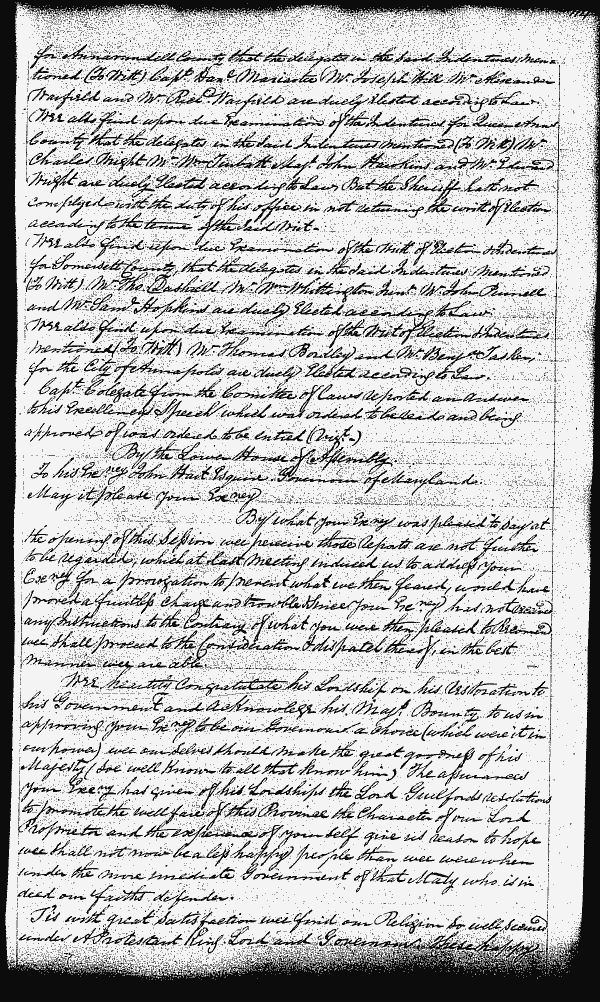 for Annarundell County that the delegates in the Said Indentures men=
tioned (To Witt) Capt. Danl. Mariartee Mr. Joseph Hill Mr. Alexander
Warfield and Mr. Richd. Warfield are duely Elected according to Law.
Wee also find upon due Examination of the Indentures for Queen Anns
County that the delegates in the Said Indentures mentioned (To Witt) Mr.
Charles Wright Mr. Wm. Turbutt Majr. John Hawkins and Mr. Edward
Wright are duely Elected according to Law, But the Sheriff hath not
complyed with the duty of his office in not returning the writt of Election
according to the tenure of the said Writ.
Wee also find upon due Examination of the Writt of Election & Indentures
for Somersett County, that the delegates in the said Indentures mentioned
(To Witt) Mr. Tho. Dashiell Mr. Wm. Whittington Junr. Mr. John Purnell
and Mr. Saml. Hopkins are duely Elected according to Law.
Wee also find upon due Examination of the Writ of Election & Indentures
mentioned (To Witt) Mr. Thomas Bordley and Mr. Benja. Tasker,
for the City of Annapolis are duely Elected according to Law.
Capt. Colegate from the Comittee of Laws reported an Answer
to his Excellencys Speech which was ordered to be read and being
approved of was ordered to be entred (Vizt.)
By the Lower House of Assembly.
To his Exncy John Hart Esquire Governour of Maryland.
May it please your Exncy
By what your Exncy was pleased to Say at
the opening of this Session wee perceive those reports are not further
to be regarded, which at last meeting induced us to address your
Exncy for a prorogation to prevent what we then feared, would have
proved a fruitless charge and trouble Since your Exncy has not
any Instructions to the Contrary of what you were then pleased to Recomend
wee shall proceed to the Consideration & dispatch thereof, in the best
manner wee are able.
Wee heartily Congratulate his Lordship on his restoration to
his Government and acknowlege his Majts. Bounty to us in
approving your Exncy to be our Governour a choice (which were it in
our power) wee ourselves should make the great goodness of his
Majesty (soe well known to all that know him) The assurances
your Exncy has given of his Lordships the Lord Guilfords resolutions
to promote the wellfare of this Province the Character of our Lord
Proprietr. and the experience of your self give us reason to hope
wee shall not now be a less happy people than wee were when
under the more imediate Government of that Maty who is in
deed our faiths defender.
Tis with great satisfaction wee find our Religion so well secured
under A Protestant King Lord and Governour these happy